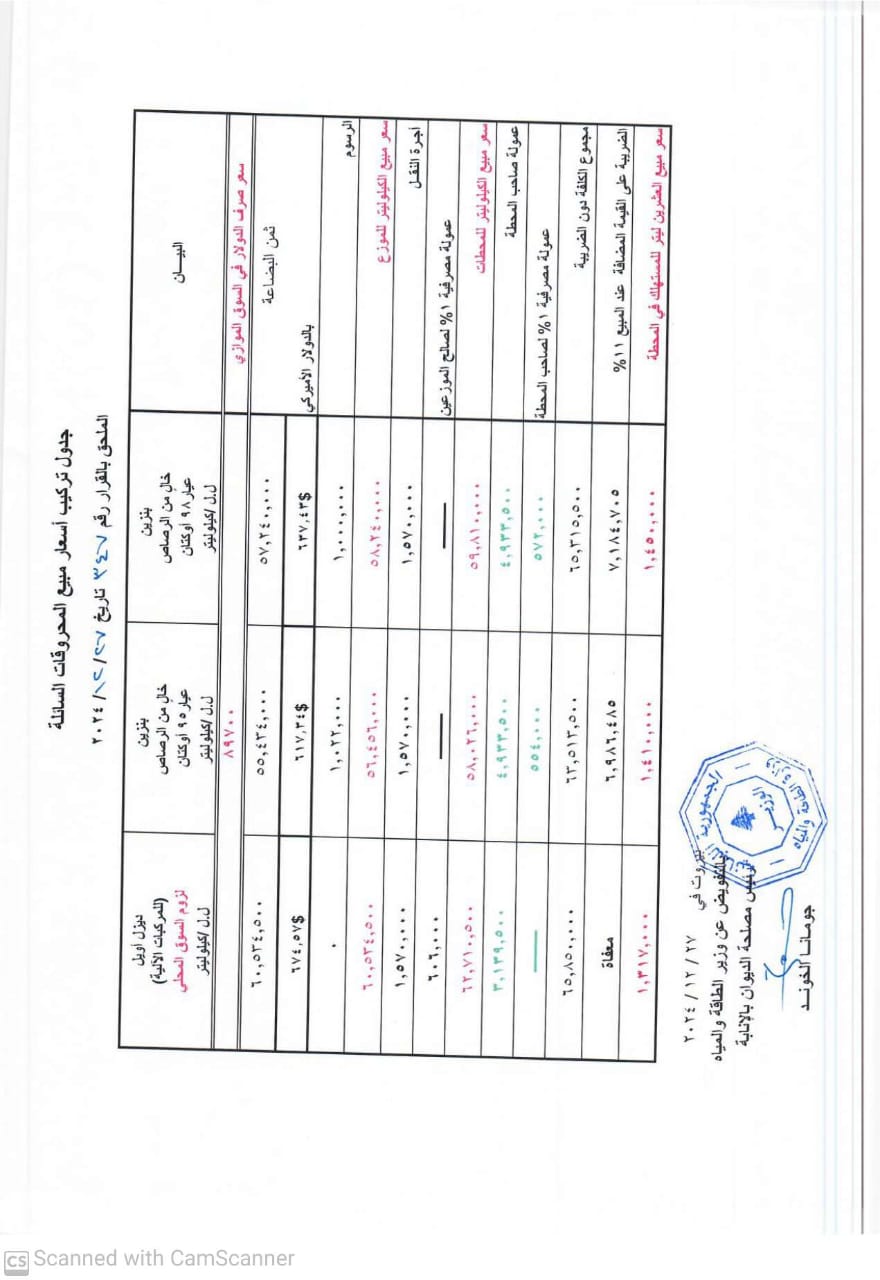 جدول تركيب أسعار مبيع المحروقات السائلة
الملحق بالقرار رقم ٣٤٧ تاريخ ٢٠٢٤/١٢/٢٧
البيـــان
بنزين
عيار ٩٨ أوكتان
خالٍ من الرصاص
ل.ل/كيلوليتر
بنزين
عيار ٩٥ أوكتان
خالٍ من الرصاص
ل.ل/كيلوليتر
ديزل أويل
(للمركبات الآلية)
لزوم السوق المحلي
ل.ل/كيلوليتر
سعر صرف الدولار في السوق الموازي ٨٩٧٠٠
ثمن البضاعة ٥٧,٢٤٠,٠٠٠ ٥٥,٤٣٤,٠٠٠ ٦٠,٥٣٤,٥٠٠
بالدولار الأميركي ٦٣٧,٤٣$ ٦١٧,٣٤$ ٦٧٤,٥٧$
الرسوم ١,٠٠٠,٠٠٠ ١,٠٢٢,٠٠٠ ٠
سعر مبيع الكيلوليتر للموزع ٥٨,٢٤٠,٠٠٠ ٥٦,٤٥٦,٠٠٠ ٦٠,٥٣٤,٥٠٠
أجرة النقل ١,٥٧٠,٠٠٠ ١,٥٧٠,٠٠٠ ١,٥٧٠,٠٠٠
عمولة مصرفية ١% لصالح الموزعين — — ٦٠٦,٠٠٠
سعر مبيع الكيلوليتر للمحطات ٥٩,٨١٠,٠٠٠ ٥٨,٠٢٦,٠٠٠ ٦٢,٧١٠,٥٠٠
عمولة صاحب المحطة ٤,٩٣٣,٥٠٠ ٤,٩٣٣,٥٠٠ ٣,١٣٩,٥٠٠
عمولة مصرفية ١% لصاحب المحطة ٥٧٢,٠٠٠ ٥٥٤,٠٠٠ —
مجموع الكلفة دون الضريبة ٦٥,٣١٥,٥٠٠ ٦٣,٥١٣,٥٠٠ ٦٥,٨٥٠,٠٠٠
الضريبة على القيمة المضافة عند المبيع ١١% ٧,١٨٤,٧٠٥ ٦,٩٨٦,٤٨٥ معفاة
سعر مبيع العشرين ليتر للمستهلك في المحطة ١,٤٥٠,٠٠٠ ١,٤١٠,٠٠٠ ١,٣١٧,٠٠٠
بيروت في ٢٠٢٤/١٢/٢٧
بالتفويض عن وزير الطاقة والمياه
رئيس مصلحة الديوان بالإنابة
جومانـا الخونـد
الجمهورية اللبنانية
وزارة الطاقة والمياه
الوزير
CS Scanned with CamScanner